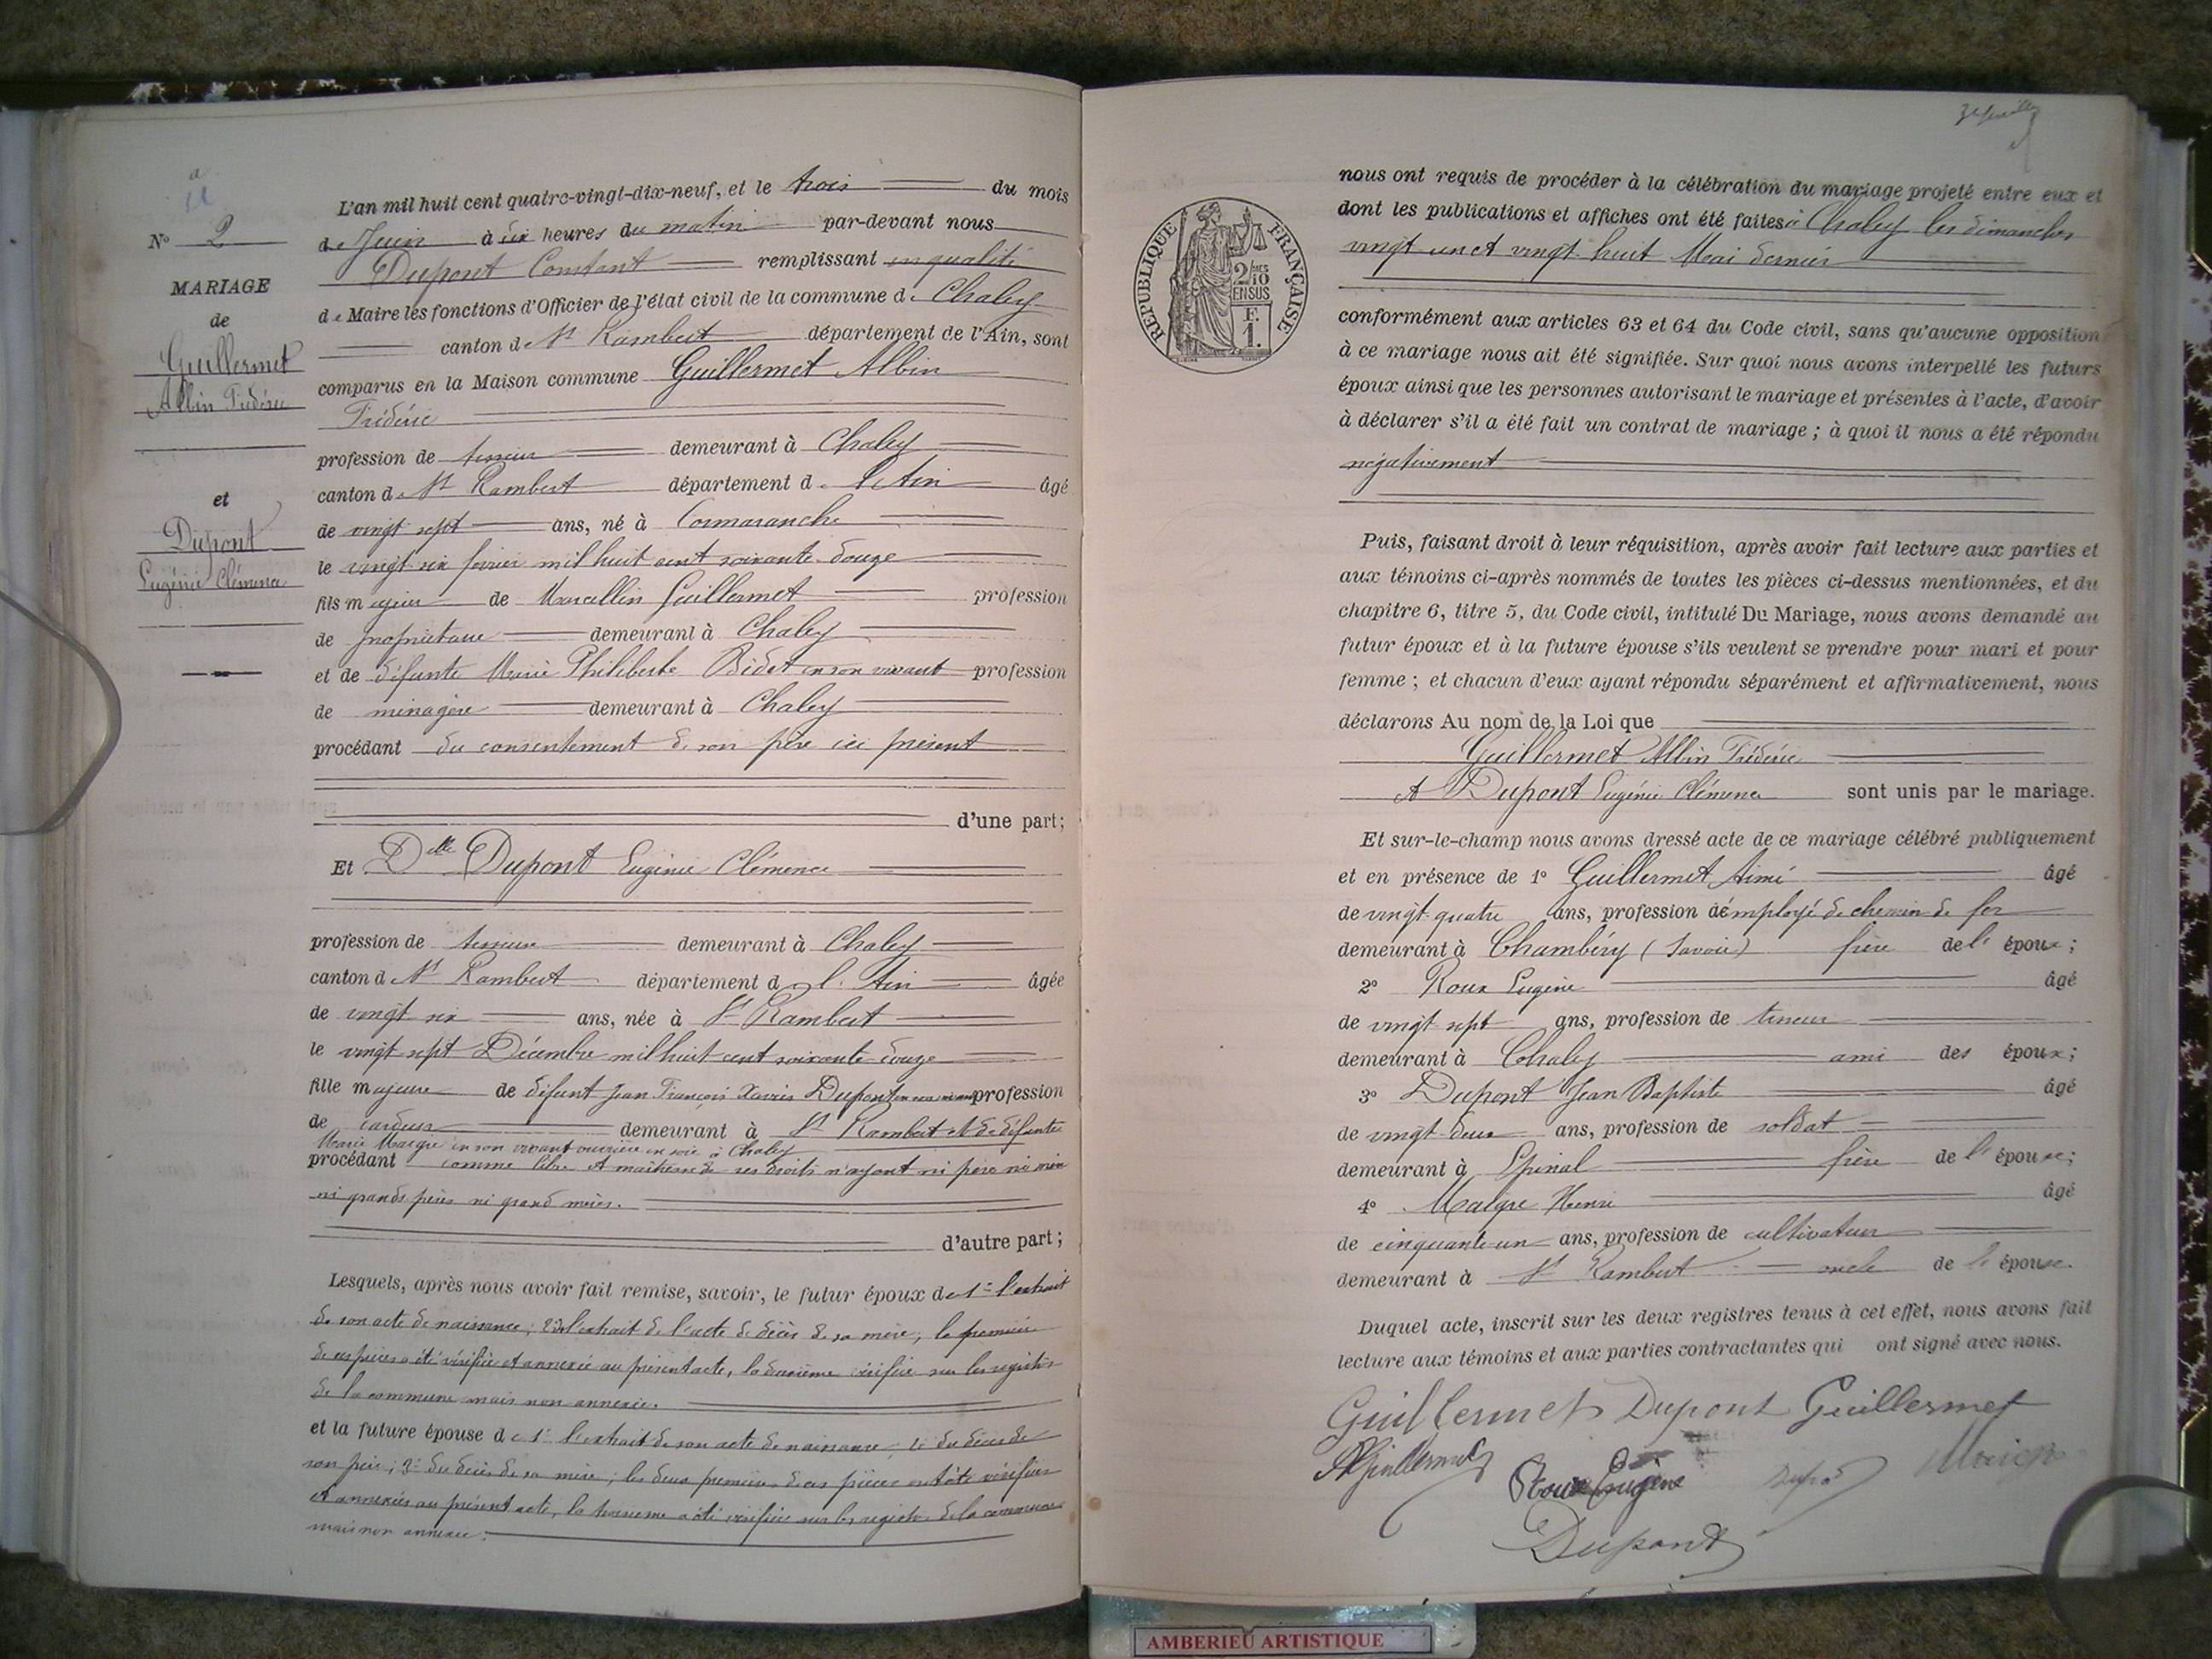 N° 2
MARIAGE
de
Guillermet
Albin Frédéric
et
Dupont
Eugénie Clémence
L'an mil huit cent quatre-vingt-dix-neuf, et le trois du mois
de Juin à dix heures du matin par-devant nous
Dupont Constant remplissant en qualité
de Maire les fonctions d'Officier de l'état civil de la commune de Chaley
canton de St Rambert département de l'Ain, sont
comparus en la Maison commune Guillermet Albin
Frédéric
profession de tisseur demeurant à Chaley
canton de St Rambert département de l'Ain âgé
de vingt sept ans, né à Cormaranche
le vingt six février mil huit cent soixante douze
fils majeur de Marcellin Guillermet profession
de propriétaire demeurant à Chaley
et de défunte Marie Philiberte Bidet en son vivant profession
de ménagère demeurant à Chaley
procédant du consentement de son père ici présent
d'une part;
Et Dlle Dupont Eugénie Clémence
profession de tisseuse demeurant à Chaley
canton de St Rambert département de l'Ain âgée
de vingt six ans, née à St Rambert
le vingt sept Décembre mil huit cent soixante douze
fille majeure de défunt Jean François Xavier Dupont en son vivant profession
de cardeur demeurant à St Rambert et de défunte
Marie Maigre en son vivant ouvrière en soie à Chaley
procédant comme libre et maîtresse de ses droits n'ayant ni père ni mère
ni grands pères ni grand mères.
d'autre part;
Lesquels, après nous avoir fait remise, savoir, le futur époux de 1° l'extrait
de son acte de naissance; 2° de l'extrait de l'acte de décès de sa mère, la première
de ces pièces a été vérifiée et annexée au présent acte, la deuxième vérifiée sur les registres
de la commune mais non annexée.
et la future épouse de 1° l'extrait de son acte de naissance; 2° du décès de
son père; 3° du décès de sa mère; les deux premières de ces pièces ont été vérifiées
et annexées au présent acte, la troisième a été vérifiée sur les registres de la commune
mais non annexée.
3e feuille
RÉPUBLIQUE FRANÇAISE
2/10 EN SUS
F. 1.
nous ont requis de procéder à la célébration du mariage projeté entre eux et
dont les publications et affiches ont été faites à Chaley les dimanches
vingt un et vingt huit Mai dernier
conformément aux articles 63 et 64 du Code civil, sans qu'aucune opposition
à ce mariage nous ait été signifiée. Sur quoi nous avons interpellé les futurs
époux ainsi que les personnes autorisant le mariage et présentes à l'acte, d'avoir
à déclarer s'il a été fait un contrat de mariage; à quoi il nous a été répondu
négativement
Puis, faisant droit à leur réquisition, après avoir fait lecture aux parties et
aux témoins ci-après nommés de toutes les pièces ci-dessus mentionnées, et du
chapitre 6, titre 5, du Code civil, intitulé Du Mariage, nous avons demandé au
futur époux et à la future épouse s'ils veulent se prendre pour mari et pour
femme; et chacun d'eux ayant répondu séparément et affirmativement, nous
déclarons Au nom de la Loi que
Guillermet Albin Frédéric
et Dupont Eugénie Clémence sont unis par le mariage.
Et sur-le-champ nous avons dressé acte de ce mariage célébré publiquement
et en présence de 1° Guillermet Aimé âgé
de vingt quatre ans, profession d'employé de chemin de fer
demeurant à Chambéry (Savoie) frère de l'époux;
2° Roux Eugène âgé
de vingt sept ans, profession de tisseur
demeurant à Chaley ami des époux;
3° Dupont Jean Baptiste âgé
de vingt deux ans, profession de soldat
demeurant à Epinal frère de l'épouse;
4° Maigre Henri âgé
de cinquante-un ans, profession de cultivateur
demeurant à St Rambert oncle de l'épouse.
Duquel acte, inscrit sur les deux registres tenus à cet effet, nous avons fait
lecture aux témoins et aux parties contractantes qui ont signé avec nous.
Guillermet Dupont Guillermet
AGuillermet Roux Eugène
Dupont
AMBERIEU ARTISTIQUE